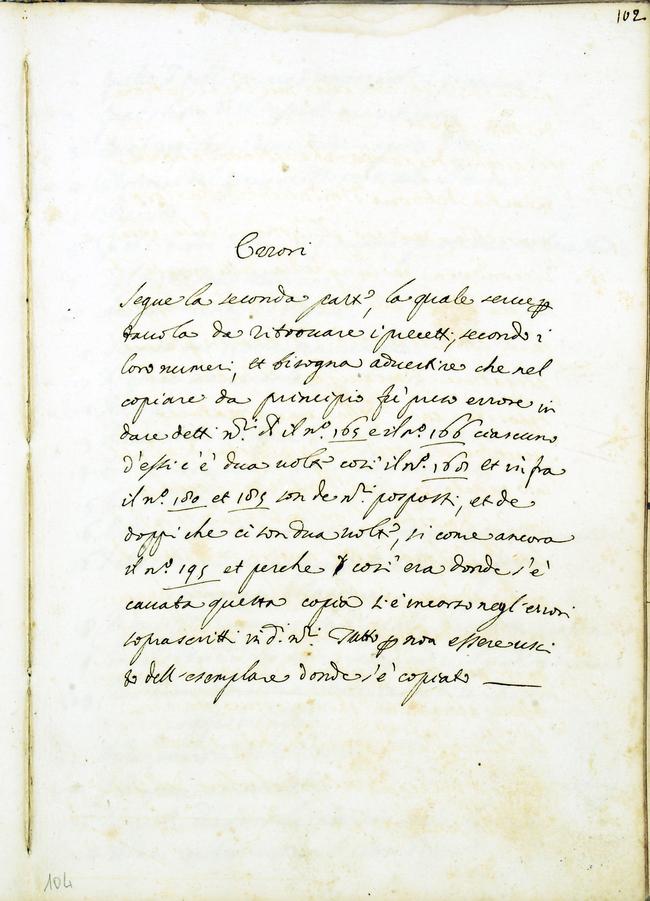 102
Errori
Segue la seconda parte, la quale serue p
tauola da ritrouare i precetti, secondo i
loro numeri, et bisogna aduertire che nel
copiare da principio fù preso errore in
dare detti n.ri il n.o 165 e il n.o 166 ciascuno
d'essi c'è dua uolte così il n.o 168 et infra
il n.o 180 et 185 son de n.ri posposti, et de
doppi che ci son dua uolte, si come ancora
il n.o 195 et perche così era donde s'è
cauata questa copia s'è incorso negl'errori
soprascritti in d.i n.ri Tutto p non essere usci
to dell'esemplare donde s'è copiato
104